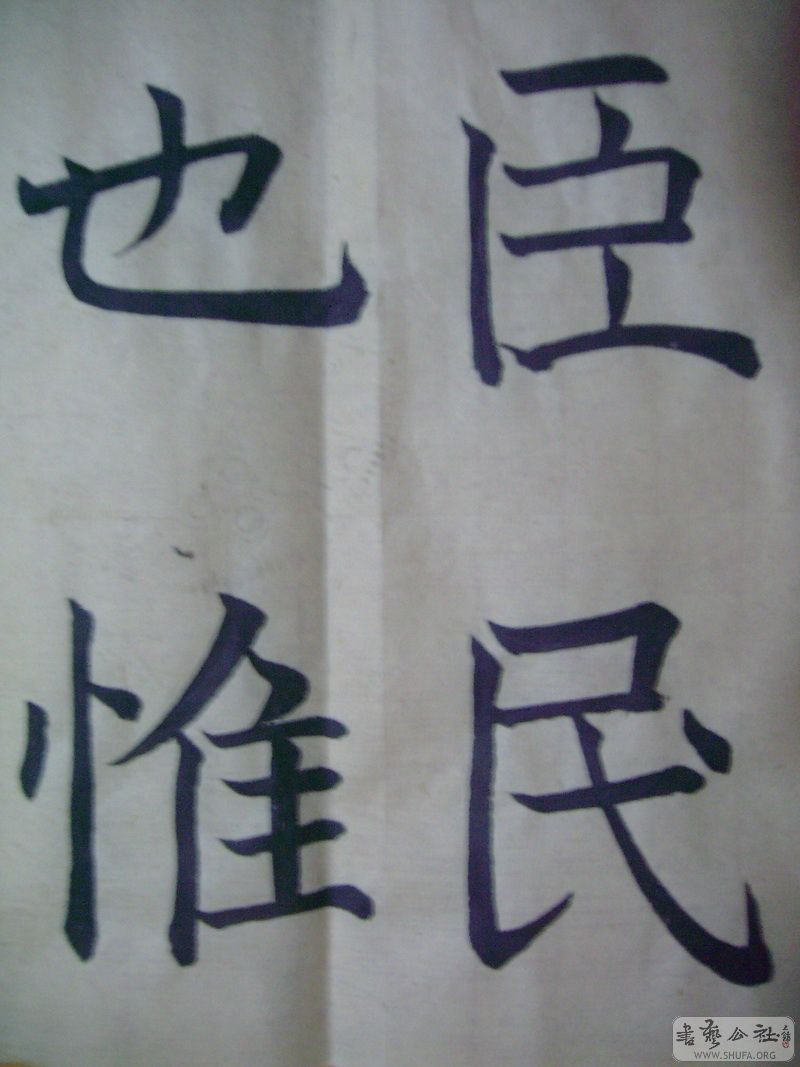 臣民
也惟
書藝公社
WWW.SHUFA.ORG